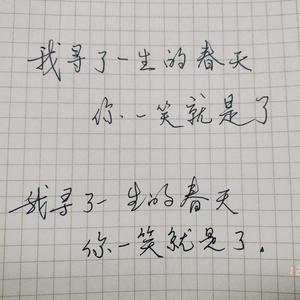 我寻了一生的春天
你一笑就是了
我寻了一生的春天
你一笑就是了.